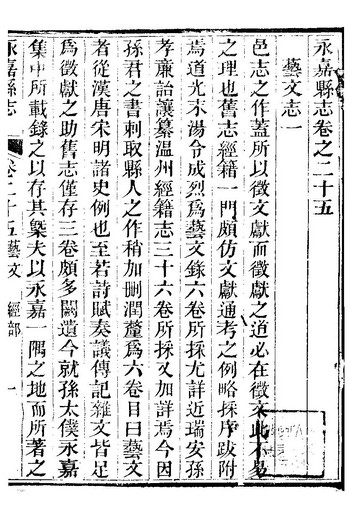 永嘉縣志卷之二十五
藝文志一
邑志之作蓋所以徵文獻而徵獻之道必在徵文此不易
之理也舊志經籍一門頗仿文獻通考之例略採序跋附
焉道光末湯令成烈爲藝文錄六卷所採尤詳近瑞安孫
孝廉詒讓纂温州經籍志三十六卷所採又加詳焉今因
孫君之書刺取縣人之作稍加刪潤釐爲六卷目曰藝文
者從漢唐宋明諸史例也至若詩賦奏議傳記雜文皆足
爲徵獻之助舊志僅存三卷頗多闕遺今就孫太僕永嘉
集中所載錄之以存其槩夫以永嘉一隅之地而所著之
永嘉縣志 卷二十五 藝文 經部 一